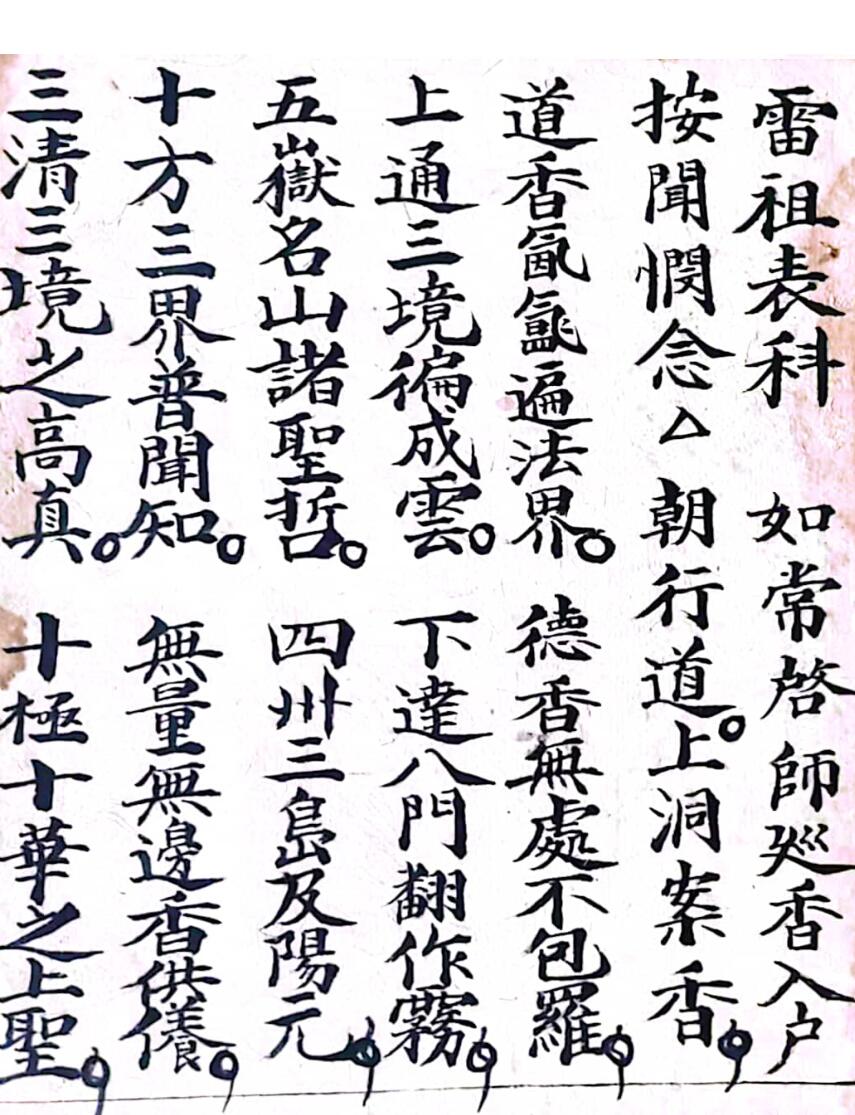 雷祖表科　如常啓師廵香入户
按聞憫念△朝行道。上洞案香。
道香氤氳遍法界。德香無處不包羅。
上通三境徧成雲。下達八門翻作霧。
五嶽名山諸聖哲。四卅三島及陽元。
十方三界普聞知。無量無邊香供儀。
三清三境之高真。十極十華之上聖。